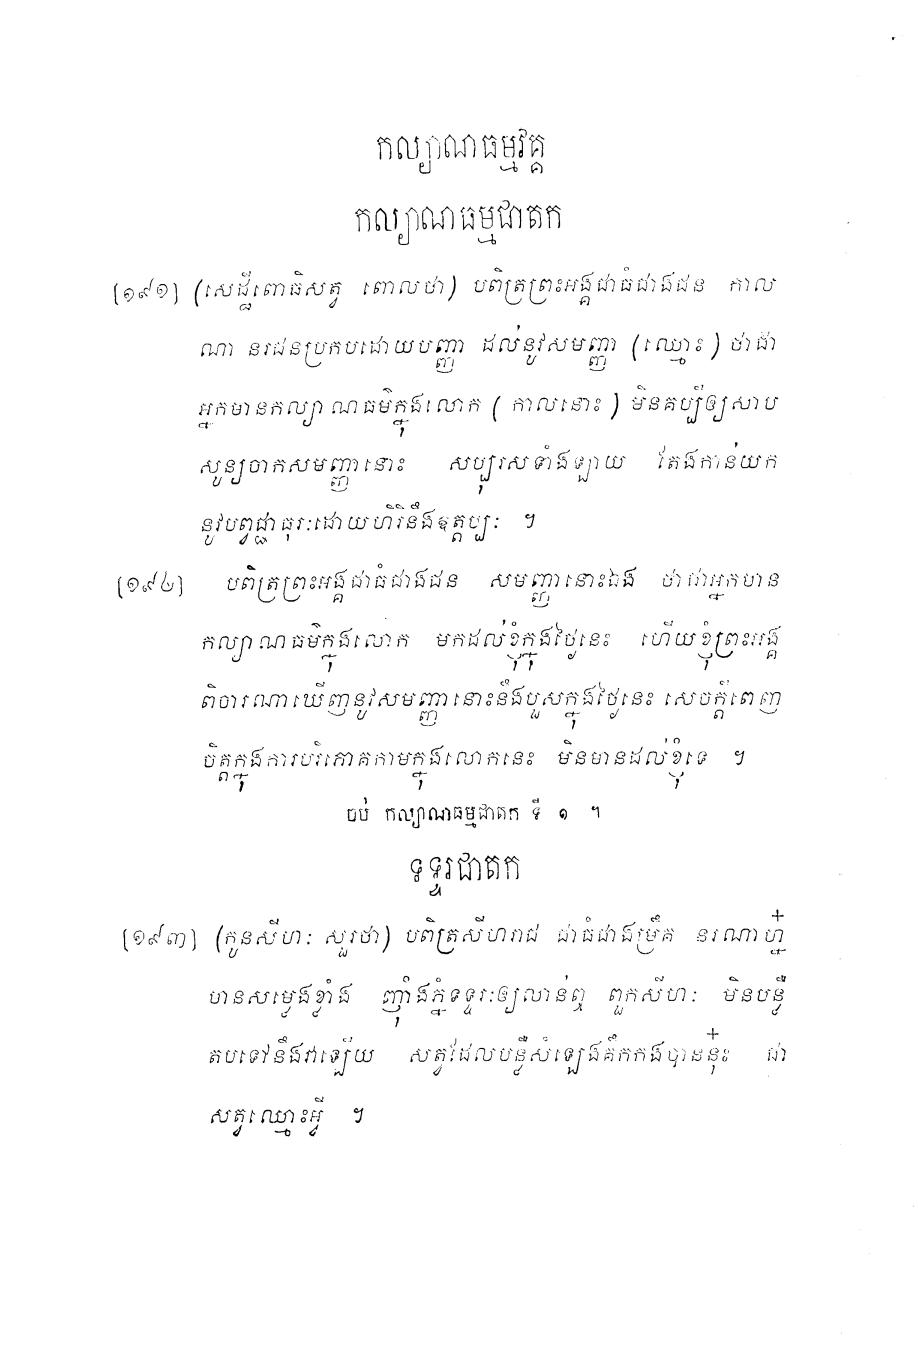 កល្យាណធម្មវគ្គ
កល្យាណធម្មជាតក
[១៩១] (សេដ្ឋីពោធិសត្វ ពោលថា) បពិត្រព្រះអង្គជាធំជាងជន កាល
ណា នរជនប្រកបដោយបញ្ញា ដល់នូវសមញ្ញា (ឈ្មោះ) ថាជា
អ្នកមានកល្យាណធម៌ក្នុងលោក (កាលនោះ) មិនគប្បីឲ្យសាប
សូន្យចាកសមញ្ញានោះ សប្បុរសទាំងឡាយ តែងកាន់យក
នូវបព្វជ្ជាធុរៈដោយហិរិនឹងឧត្តប្បៈ ។
[១៩២] បពិត្រព្រះអង្គជាធំជាងជន សមញ្ញានោះឯង ថាជាអ្នកមាន
កល្យាណធម៌ក្នុងលោក មកដល់ខ្ញុំក្នុងថ្ងៃនេះ ហើយខ្ញុំព្រះអង្គ
ពិចារណាឃើញនូវសមញ្ញានោះនឹងបួសក្នុងថ្ងៃនេះ សេចក្តីពេញ
ចិត្តក្នុងការបរិភោគកាមក្នុងលោកនេះ មិនមានដល់ខ្ញុំទេ ។
ចប់ កល្យាណធម្មជាតក ទី ១ ។
ទទ្ទរជាតក
[១៩៣] (កូនសីហៈ សួរថា) បពិត្រសីហរាជ ជាធំជាងម្រឹគ នរណាហ្ន៎
មានសម្លេងខ្លាំង ញ៉ាំងភ្នំទទ្ទរៈឲ្យលាន់ឮ ពួកសីហៈ មិនបន្លឺ
តបទៅនឹងវាឡើយ សត្វដែលបន្លឺសំឡេងគឹកកងបាននុ៎ះ ជា
សត្វឈ្មោះអ្វី ។